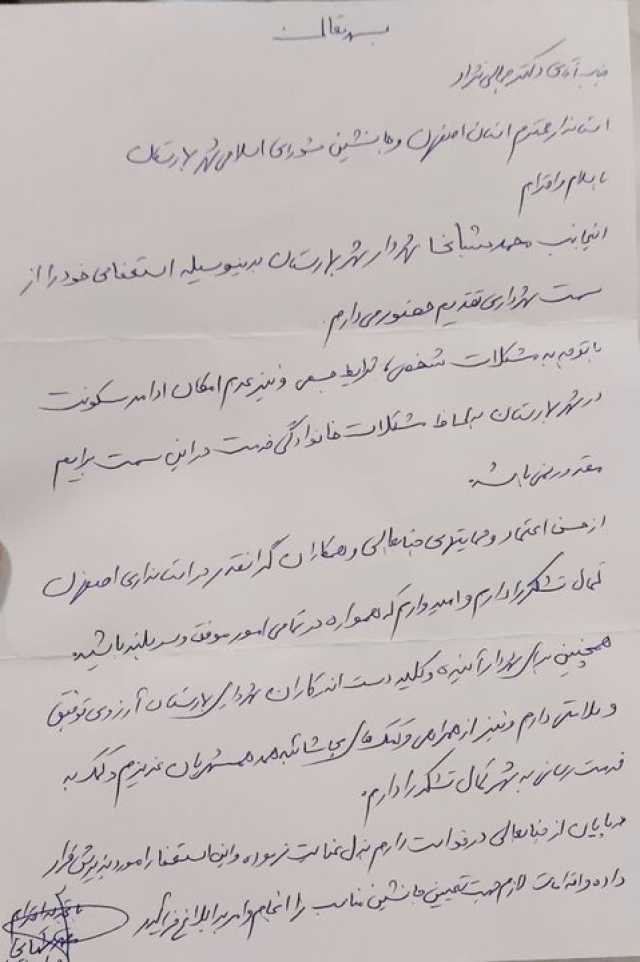 بسمه تعالی
جناب آقای دکتر جمالی نژاد
استاندار محترم استان اصفهان و جانشین شورای اسلامی شهر بهارستان
با سلام و احترام
اینجانب محمد شهردار شهر بهارستان بدینوسیله استعفای خود را از
سمت شهرداری تقدیم حضور می دارم.
با توجه به مشکلات شخصی، شرایط جسمی و نیز عدم امکان ادامه سکونت
در شهر بهارستان به لحاظ مشکلات خانوادگی خدمت در این سمت برایم
مقدور نمی باشد.
از حسن اعتماد و حمایتهای جنابعالی و همکاران گرانقدر در استانداری اصفهان
کمال تشکر را دارم و امیدوارم که همواره در تمامی امور موفق و سربلند باشید.
همچنین برای شهردار آینده و کلیه دست اندرکاران شهرداری بهارستان آرزوی توفیق
و سلامتی دارم و نیز از همراهی و کمک های بی شائبه همه همشهریان عزیزم و کمک به
خدمت رسانی به شهر کمال تشکر را دارم.
در پایان از جنابعالی درخواست دارم بذل عنایت فرموده و این استعفا را مورد پذیرش قرار
داده و اقدامات لازم جهت تعیین جانشین مناسب را انجام و امر به ابلاغ فرمائید
با تجدید احترام